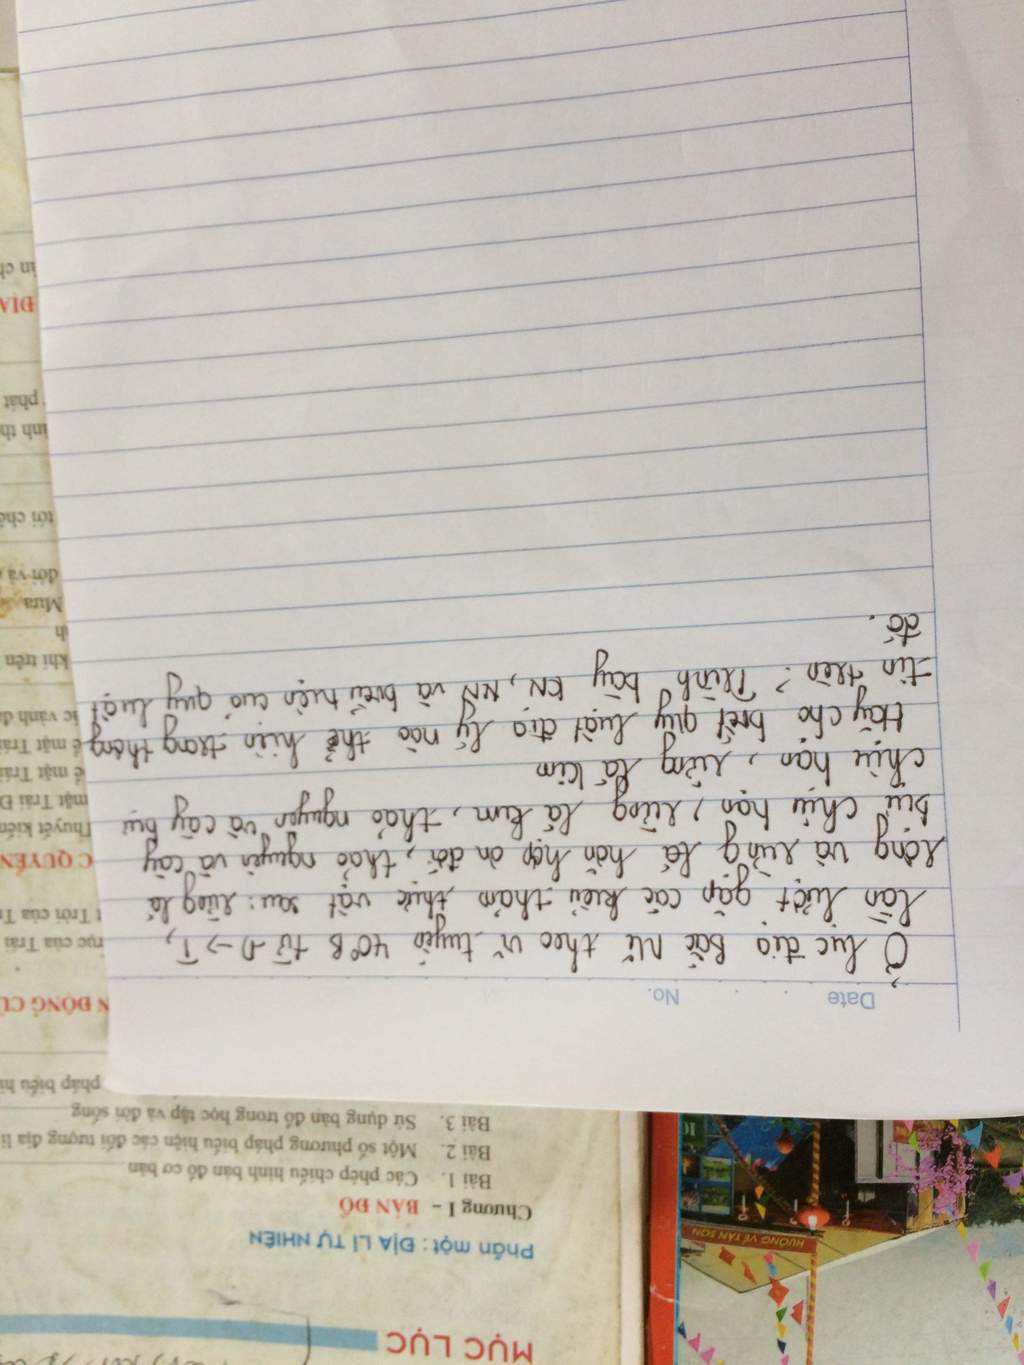 Date No.
Ở lục địa Bắc Mĩ theo vĩ tuyến 40°B từ Đ -> T,
lần lượt gặp các kiểu thảm thực vật sau: rừng lá
rộng và rừng lá hỗn hợp ôn đới, thảo nguyên và cây
bụi chịu hạn, rừng lá kim, thảo nguyên và cây bụi
chịu hạn, rừng lá kim
Hãy cho biết quy luật địa lý nào thể hiện trong thông
tin trên? Trình bày KN, NN và biểu hiện của quy luật
đó.
MỤC LỤC
Phần một: ĐỊA LÍ TỰ NHIÊN
Chương I - BẢN ĐỒ
Bài 1. Các phép chiếu hình bản đồ cơ bản
Bài 2. Một số phương pháp biểu hiện các đối tượng địa lí
Bài 3. Sử dụng bản đồ trong học tập và đời sống
pháp biểu
N ĐỘNG
của Trái
Trời của
QUYỂN
Thuyết kiến
mặt Trái Đ
mặt Trái
mặt Trái
vành
khí trên
Mưa
đới và
tới
phát
ĐỊA
HƯỚNG VỀ TÂN SƠN